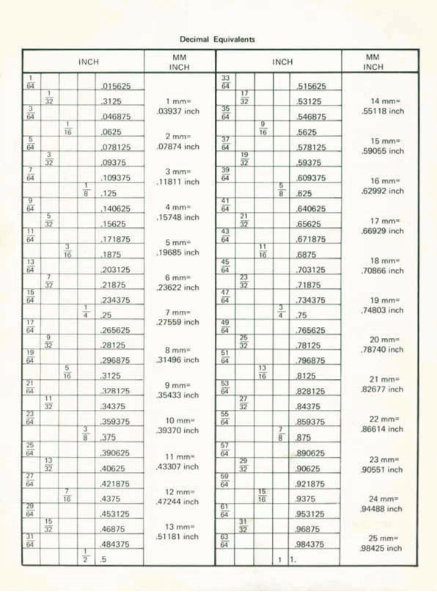 Decimal Equivalents
INCH
MM
INCH
INCH
MM
INCH
1/64 .015625
1/32 .3125
3/64 .046875
1/16 .0625
5/64 .078125
3/32 .09375
7/64 .109375
1/8 .125
9/64 .140625
5/32 .15625
11/64 .171875
3/16 .1875
13/64 .203125
7/32 .21875
15/64 .234375
1/4 .25
17/64 .265625
9/32 .28125
19/64 .296875
5/16 .3125
21/64 .328125
11/32 .34375
23/64 .359375
3/8 .375
25/64 .390625
13/32 .40625
27/64 .421875
7/16 .4375
29/64 .453125
15/32 .46875
31/64 .484375
1/2 .5
1 mm=
.03937 inch
2 mm=
.07874 inch
3 mm=
.11811 inch
4 mm=
.15748 inch
5 mm=
.19685 inch
6 mm=
.23622 inch
7 mm=
.27559 inch
8 mm=
.31496 inch
9 mm=
.35433 inch
10 mm=
.39370 inch
11 mm=
.43307 inch
12 mm=
.47244 inch
13 mm=
.51181 inch
33/64 .515625
17/32 .53125
35/64 .546875
9/16 .5625
37/64 .578125
19/32 .59375
39/64 .609375
5/8 .825
41/64 .640625
21/32 .65625
43/64 .671875
11/16 .6875
45/64 .703125
23/32 .71875
47/64 .734375
3/4 .75
49/64 .765625
25/32 .78125
51/64 .796875
13/16 .8125
53/64 .828125
27/32 .84375
55/64 .859375
7/8 .875
57/64 .890625
29/32 .90625
59/64 .921875
15/16 .9375
61/64 .953125
31/32 .96875
63/64 .984375
1 1.
14 mm=
.55118 inch
15 mm=
.59055 inch
16 mm=
.62992 inch
17 mm=
.66929 inch
18 mm=
.70866 inch
19 mm=
.74803 inch
20 mm=
.78740 inch
21 mm=
.82677 inch
22 mm=
.86614 inch
23 mm=
.90551 inch
24 mm=
.94488 inch
25 mm=
.98425 inch